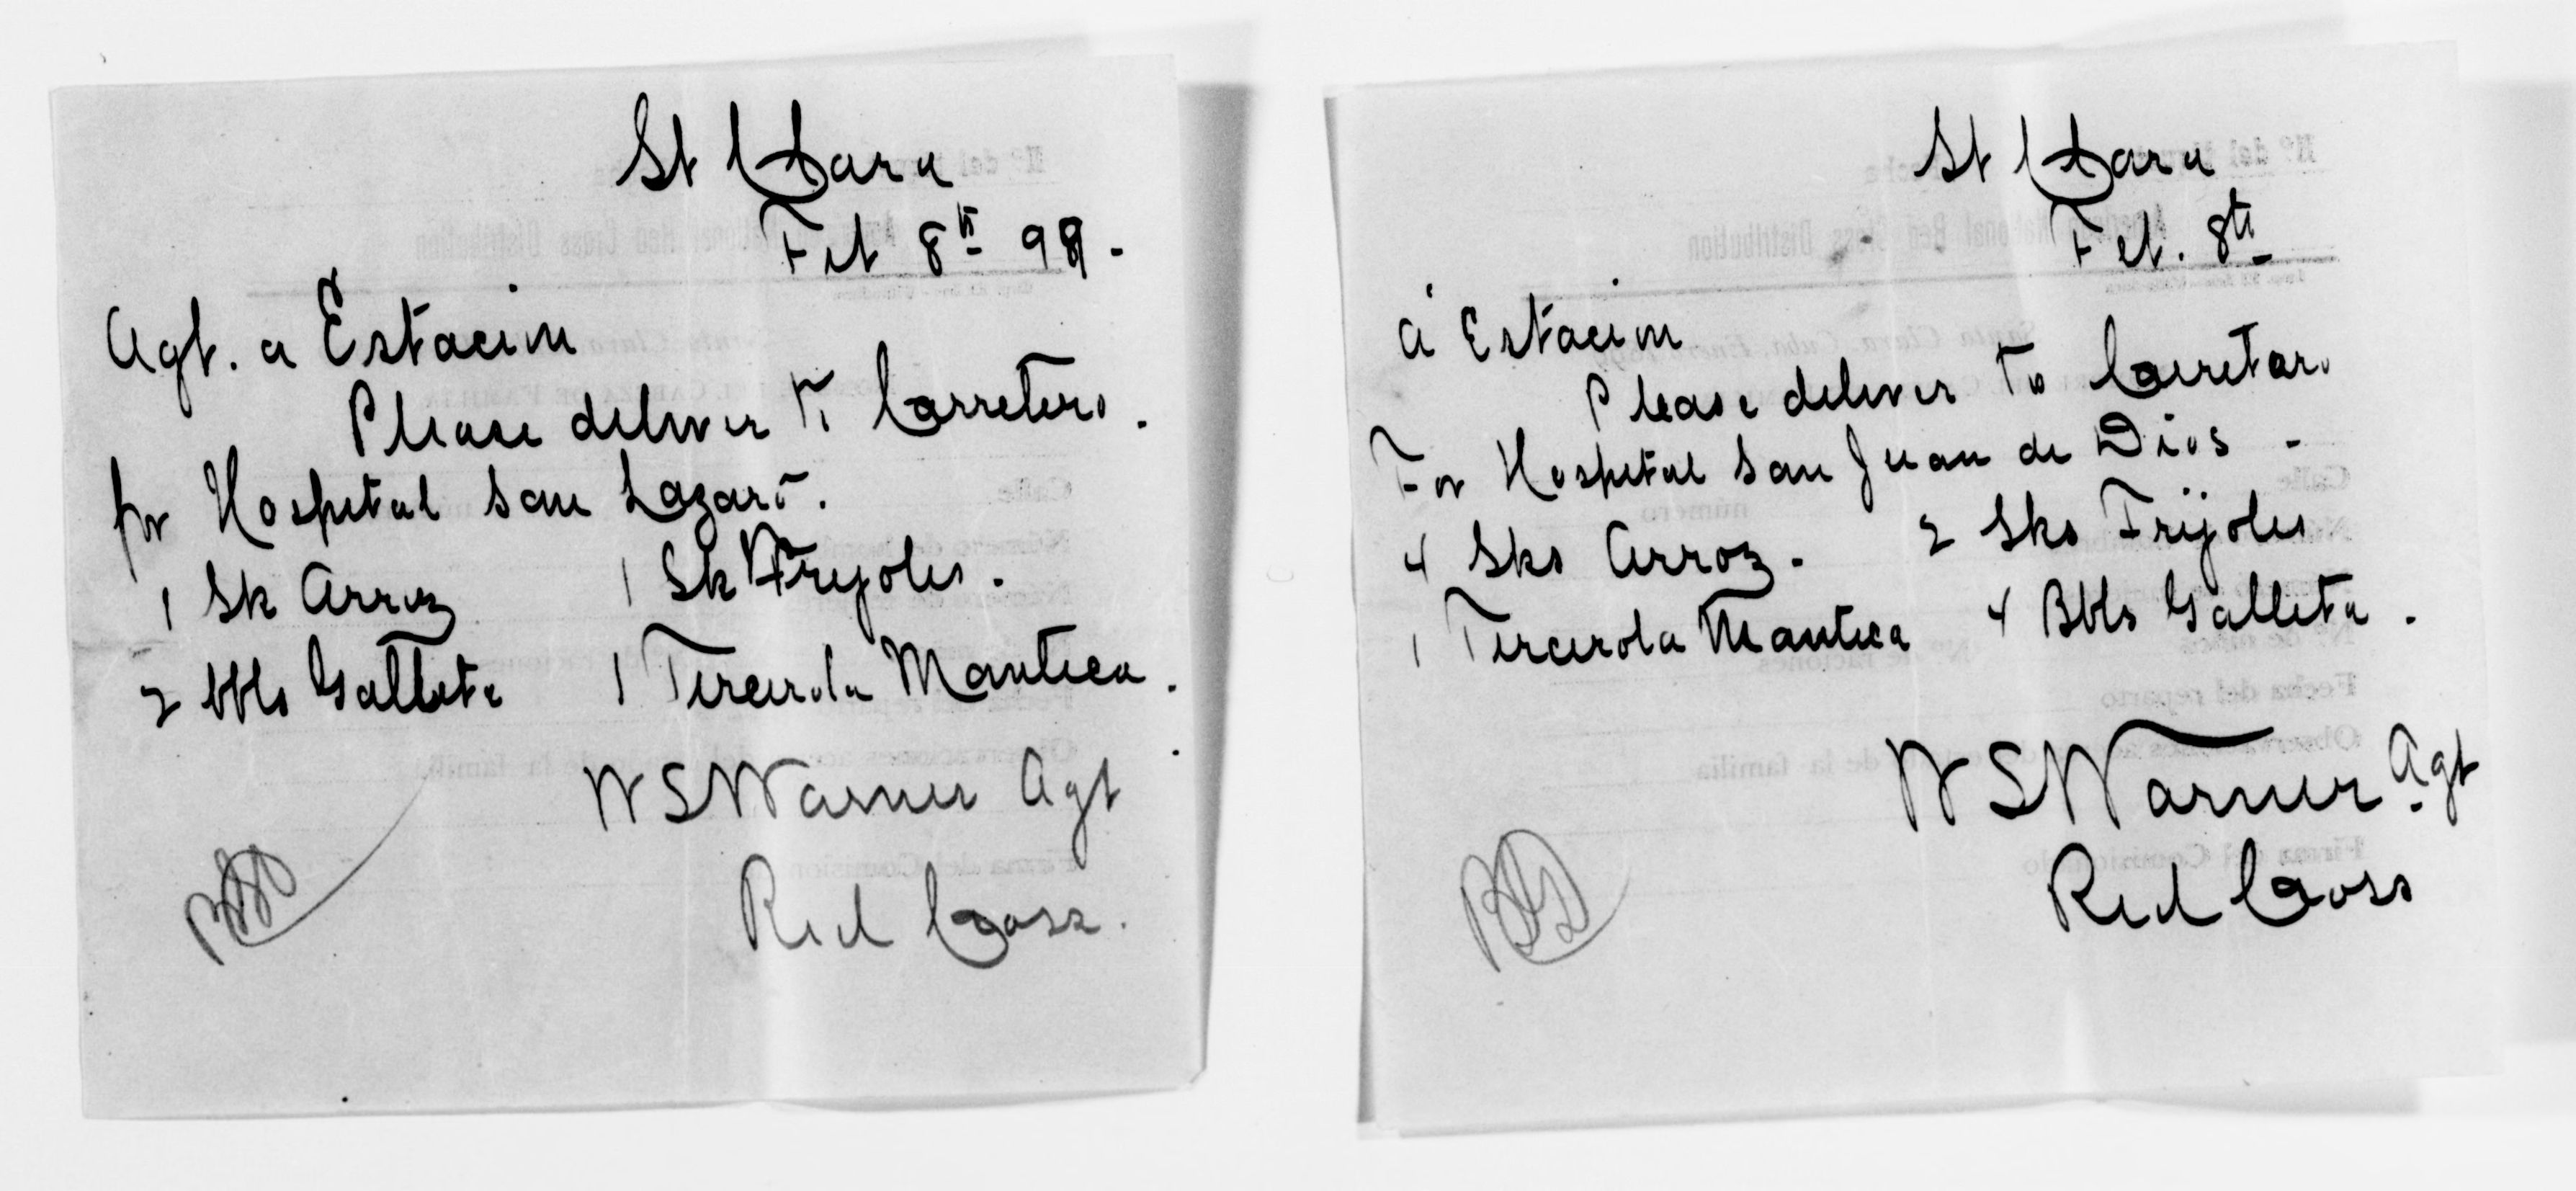 St Clara
Feb 8th 99.
Agt. a Estacion
Please deliver to Carretero.
for Hospital San Lazaro.
1 Sk Arroz 1 Sk Frijoles.
2 bbls Galleta 1 Tercerola Manteca.
W S Warner Agt
Red Cross.
St Clara
Feb. 8th
a Estacion
Please deliver to Carretero
For Hospital San Juan de Dios -
4 Sks Arroz. 2 Sks Frijoles
1 Tercerola Manteca 4 Bbls Galleta.
W S Warner Agt
Red Cross